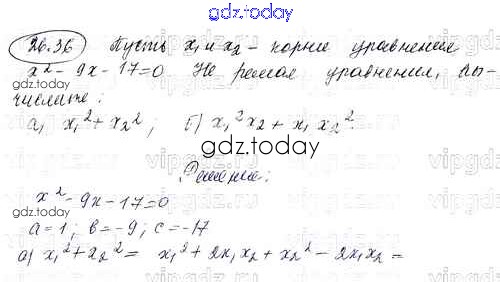 gdz.today
26.36 Пусть x₁ и x₂ - корни уравнения
x² - 9x - 17 = 0 Не решая уравнения, вы-
gdz.today
числите:
а) x₁² + x₂² ; б) x₁²x₂ + x₁x₂².
gdz.today
Решение:
x² - 9x - 17 = 0
gdz.today
a = 1; b = -9; c = -17
а) x₁² + x₂² = x₁² + 2x₁x₂ + x₂² - 2x₁x₂ =
vipgdz.com